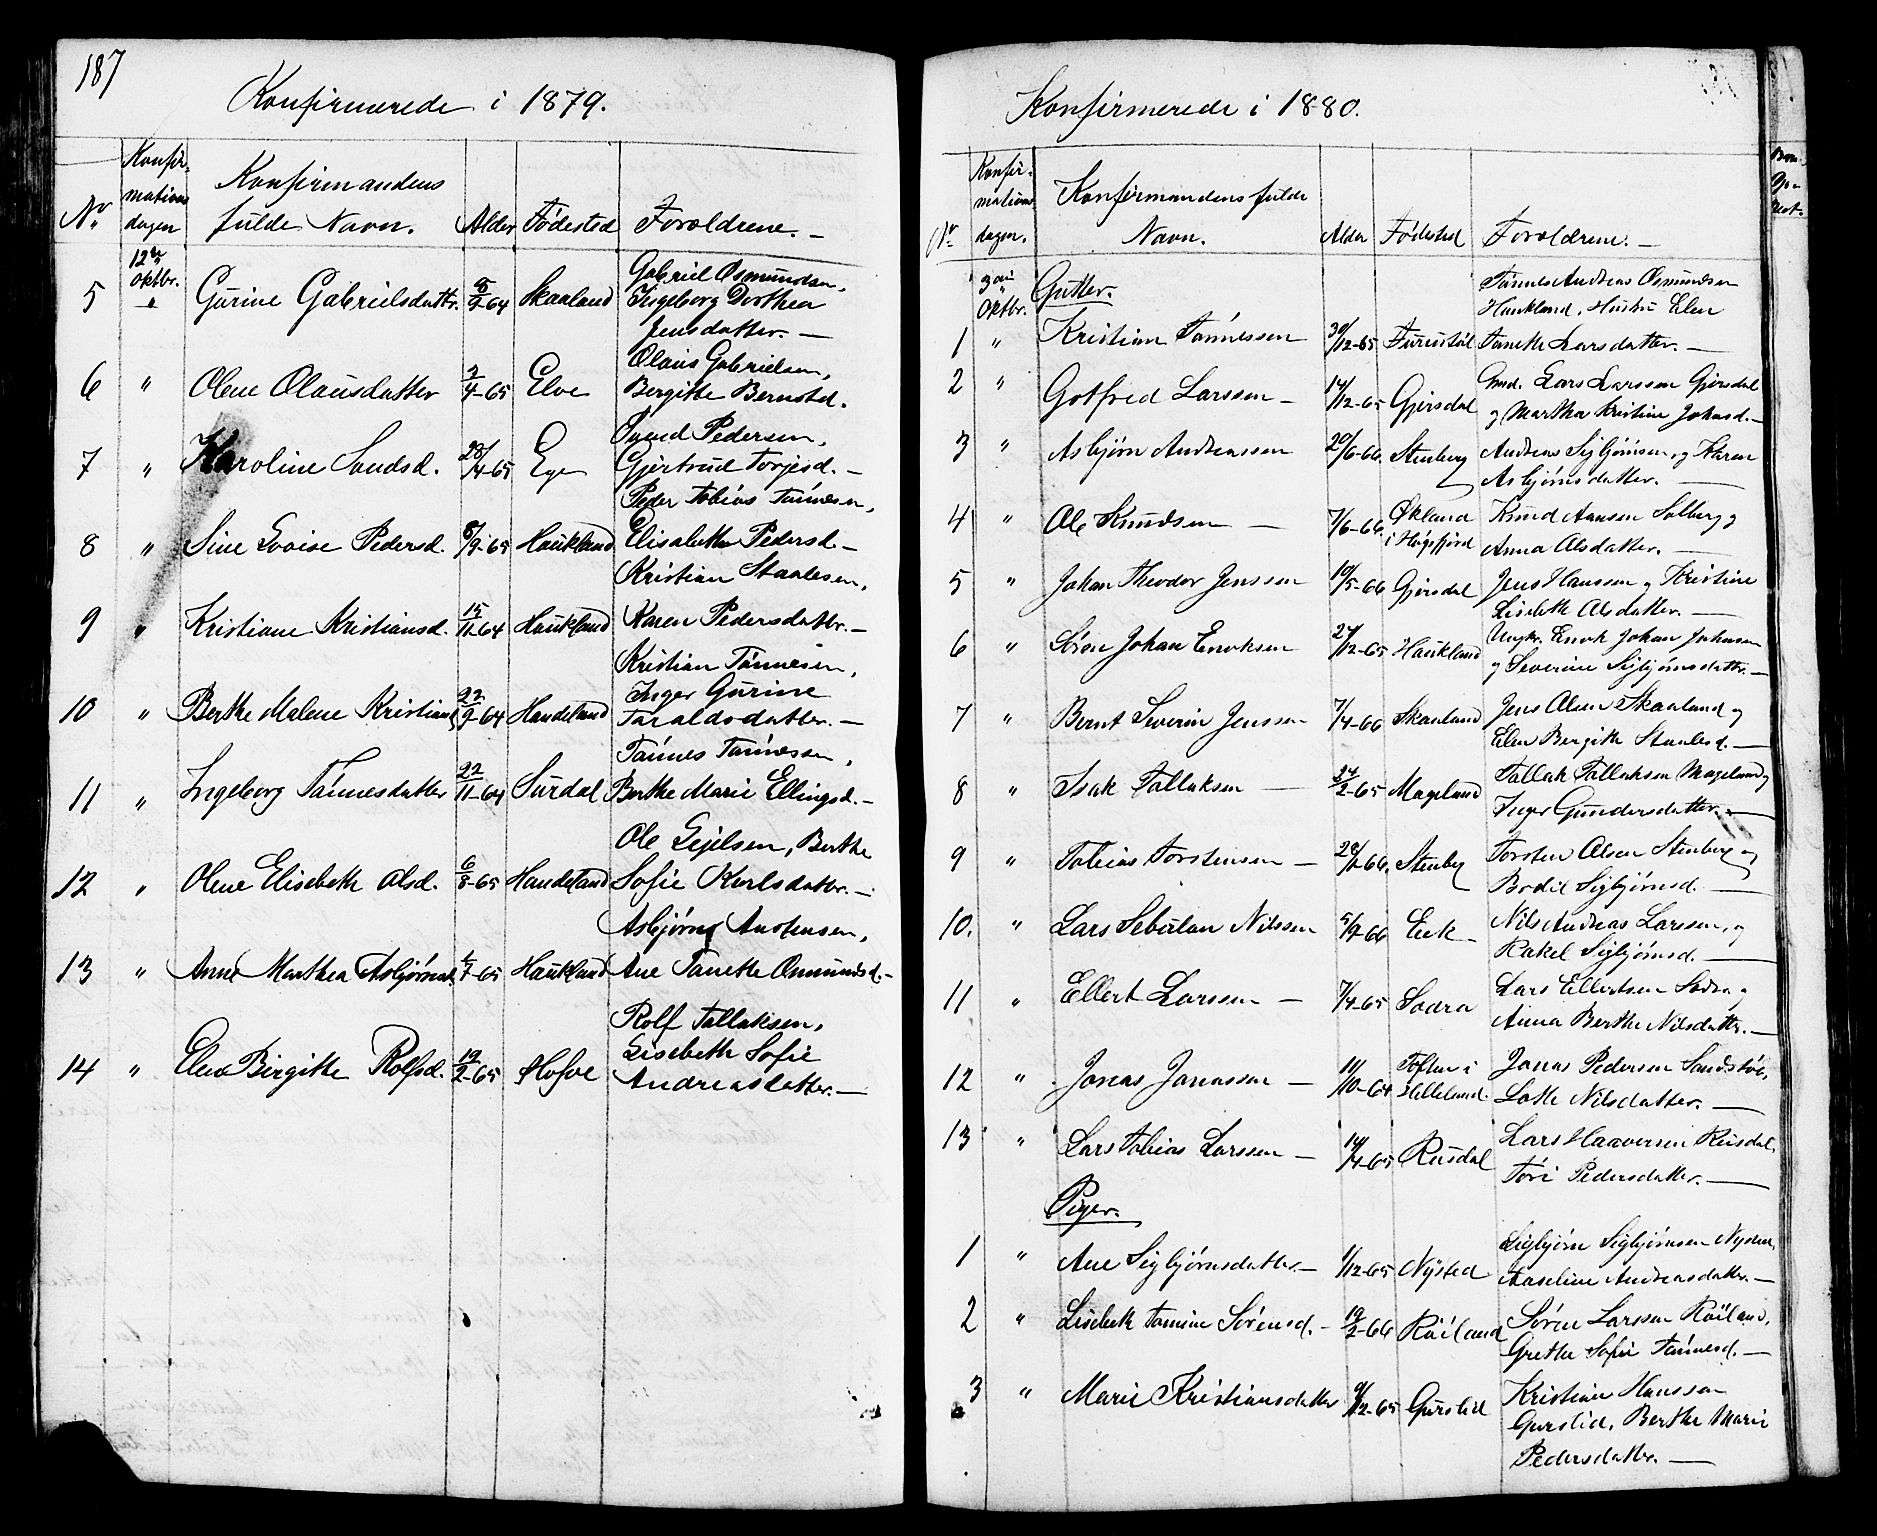 187
Konfirmerede i 1879.
No. Konfir-mations dagen Konfirmandens fulde Navn. Alder Fødested Forældrene. —
12te Oktbr.
5 " Gurine Gabrielsdattr. 5/9-64 Skaaland Gabriel Osmundsen, Ingeborg Dorthea Jensdatter. —
6 " Olene Olausdatter 2/4-65 Elve Olaus Gabrielsen, Bergitte Berntsd.
7 " Karoline d. 28/4-65 Ege Pedersen, Gjertrud Torjesd. —
8 " Sine Lovise Pedersd. 8/9-65 Haukland Peder Tobias Tønnesen, Elisabeth Pedersd. —
9 " Kristiane Kristiansd. 15/11-64 Haukland Kristian Staalesen, Karen Pedersdattr. —
10 " Berthe Malene Kristians 22/9-64 Handeland Kristian Tønnesen, Inger Gurine Taraldsdatter. —
11 " Ingeborg Tønnesdatter 22/11-64 Surdal Tønnes Tønnessen, Berthe Marie Ellingsd. —
12 " Olene Elisebeth Olsd. 6/8-65 Handeland Ole Gjelsen, Berthe Sofie Karlsdattr. —
13 " Anne Marthea Asbjørnsd. /7-65 Haukland Asbjørn Austensen, Ane Tanette Osmundsd. —
14 " Elen Birgitte Rolfsd. 19/2-65 Hofve Rolf Tallaksen, Lisebeth Sofie Andreasdatter. —
Konfirmerede i 1880.
Nr. Konfir-mations dagen. Konfirmandens fulde Navn. Alder Fødested Forældrene. —
Oktbr. Gutter.
1 " Kristian Tønnessen 30/12-65 Furustøl Tønnes Andreas Osmundsen Haukland, Hustru Elen Tanette Larsdatter. —
2 " Gotfred Larssen — 14/12-65 Gjersdal Gmd. Lars Larssen Gjersdal og Marthea Kristine Johnsd. —
3 " Asbjørn Andreassen 20/6-66. Stenberg Andreas Sigbjørnsen, og Karen Asbjørnsdatter. —
4 " Ole Knudsen — 7/6-66 Økland i Høgsfjord Knud Aansen Solberg og Anna Olsdatter. —
5 " Johan Theodor Jenssen 10/5-66 Gjersdal Jens Hanssen og Kristine Lisebeth Olsdatter. —
6 " Søren Johan Enoksen 27/12-65 Haukland Ungkr. Enok Johan Johnsen og Severine Sigbjørnsdattr. —
7 " Bernt Severin Jenssen 7/4-66 Skaaland Jens Olsen Skaaland og Elen Bergitte Staalesd. —
8 " Isak Tallaksen — 24/2-65 Mageland Tallak Tallaksen Mageland og Inger Gundersdatter. —
9 " Tobias Torstensen — 28/1-66, Stenberg Torsten Olsen Stenberg og Bodil Sigbjørnsd. —
10. " Lars Sebulon Nilssen 5/9-66 Eek — Nils Andreas Larssen, og Rakel Sigbjørnsd. —
11 " Ellert Larssen — 7/4-65 Sodra Lars Ellertsen Sodra og Anna Berthe Nilsdattr. —
12 " Jonas Jonassen — 11/10-64 Toften i Helleland. Jonas Pedersen Sandstøl, Lotte Nilsdatter. —
13 " Lars Tobias Larssen — 14/4-65 Reusdal Lars Haaversen Reusdal, Tøri Pedersdatter. —
Piger.
1 " Ane Sigbjørnsdatter — 1/12-65 Nysted Sigbjørn Sigbjørnsen Nysted, Aaseline Andreasdattr. —
2 " Lisebeth Tomine Sørensd. — 19/2-66 Røiland Søren Larssen Røiland, Grethe Sofie Tønnesd. —
3 " Marie Kristiansdatter 9/12-65 Gyrslid Kristian Hanssen Gyrslid, Berthe Marie Pedersdatter. —